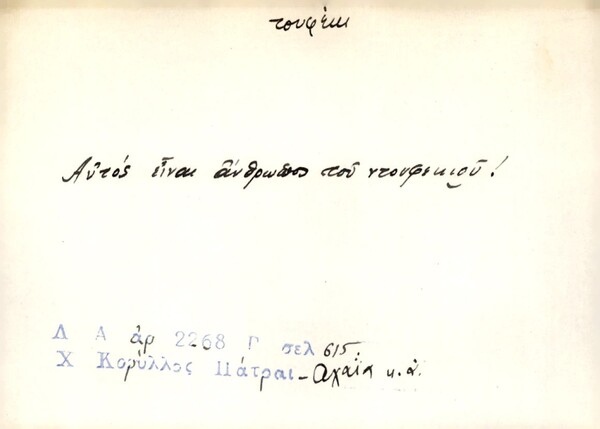 τουφέκι
Αὐτός εἶναι ἄνθρωπος τοῦ ντουφεκιοῦ!
Λ Α ἀρ 2268 Γ σελ 615.
Χ Κορύλλος Πάτραι - Αχαΐα κ.ἀ.